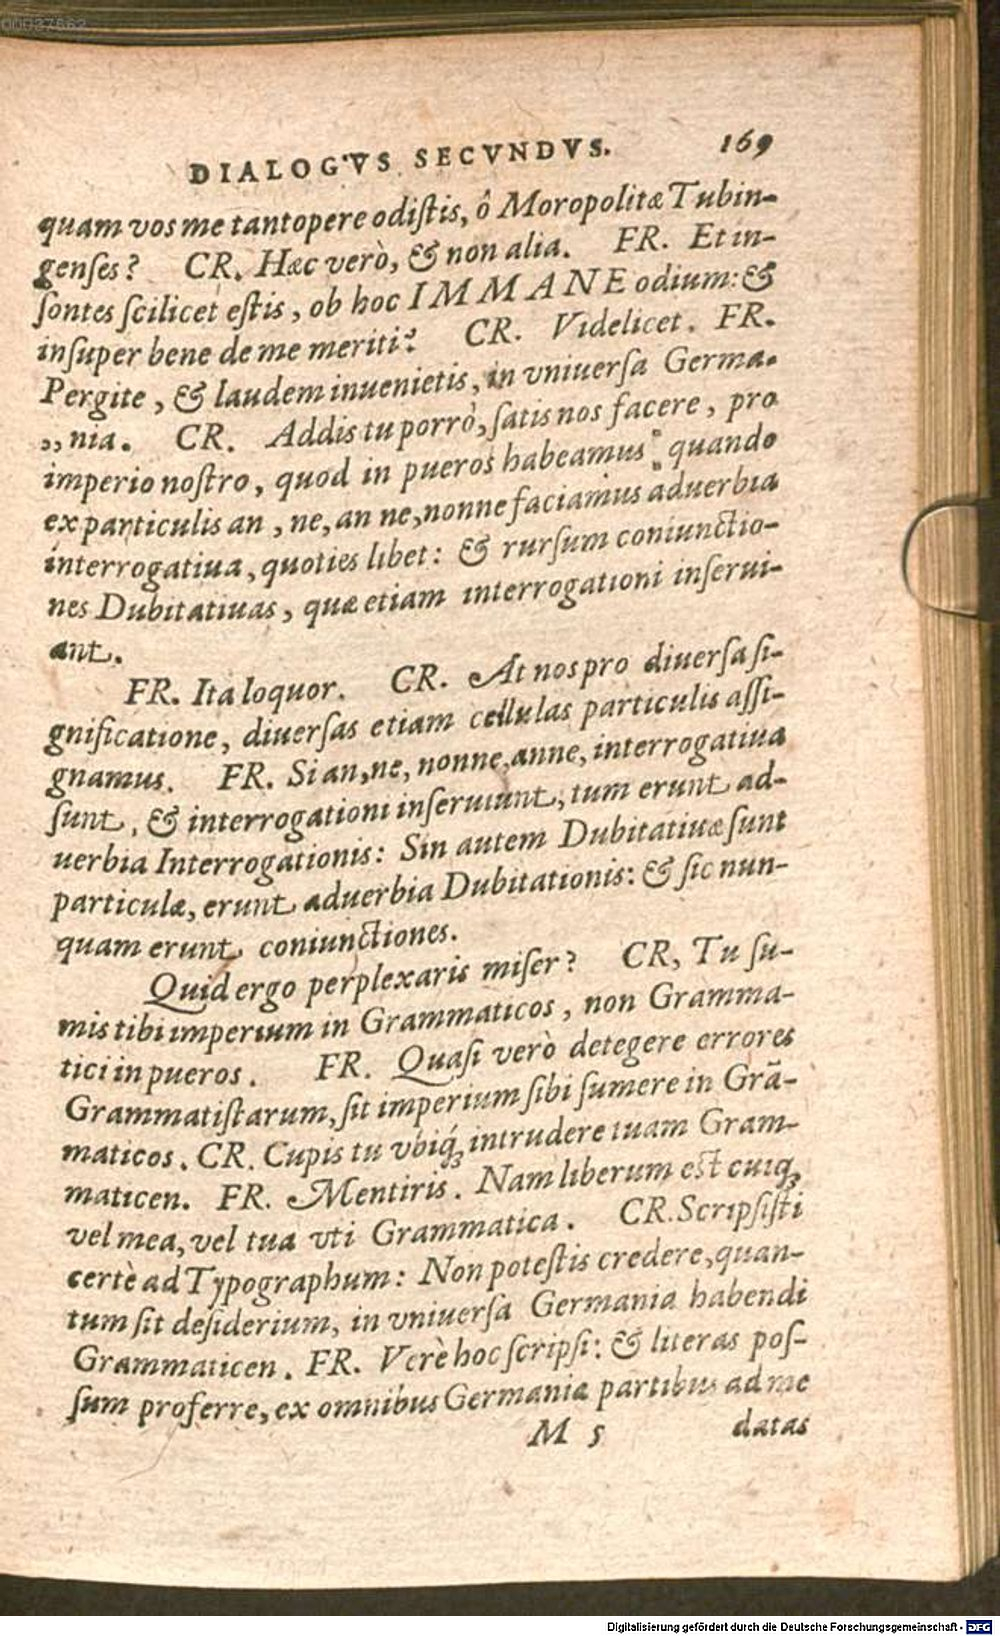 00037662
DIALOGVS SECVNDVS. 169
quam vos me tantopere odiſtis, ô Moropolitæ Tubin-
genſes? CR. Hæc verò, & non alia. FR. Et in-
ſontes ſcilicet eſtis, ob hoc IMMANE odium: &
inſuper bene de me meriti? CR. Videlicet. FR.
Pergite, & laudem inuenietis, in vniuerſa Germa-
,, nia. CR. Addis tu porrò, ſatis nos facere, pro
imperio noſtro, quod in pueros habeamus: quando
ex particulis an, ne, an ne, nonne faciamus aduerbia
interrogatiua, quoties libet: & rurſum coniunctio-
nes Dubitatiuas, quæ etiam interrogationi inſerui-
ant.
FR. Ita loquor. CR. At nos pro diuerſa ſi-
gnificatione, diuerſas etiam cellulas particulis aſſi-
gnamus. FR. Si an, ne, nonne, anne, interrogatiua
ſunt, & interrogationi inſeruiunt, tum erunt ad-
uerbia Interrogationis: Sin autem Dubitatiuæ ſunt
particulæ, erunt aduerbia Dubitationis: & ſic nun-
quam erunt coniunctiones.
Quid ergo perplexaris miſer? CR, Tu ſu-
mis tibi imperium in Grammaticos, non Gramma-
tici in pueros. FR. Quaſi verò detegere errores
Grammatiſtarum, ſit imperium ſibi ſumere in Grã-
maticos. CR. Cupis tu vbiq́ꝫ intrudere tuam Gram-
maticen. FR. Mentiris. Nam liberum eſt cuiqꝫ
vel mea, vel tua vti Grammatica. CR. Scripſiſti
certè ad Typographum: Non poteſtis credere, quan-
tum ſit deſiderium, in vniuerſa Germania habendi
Grammaticen. FR. Verè hoc ſcripſi: & literas poſ-
ſum proferre, ex omnibus Germaniæ partibus ad me
M 5 datas
Digitalisierung gefördert durch die Deutsche Forschungsgemeinschaft - DFG